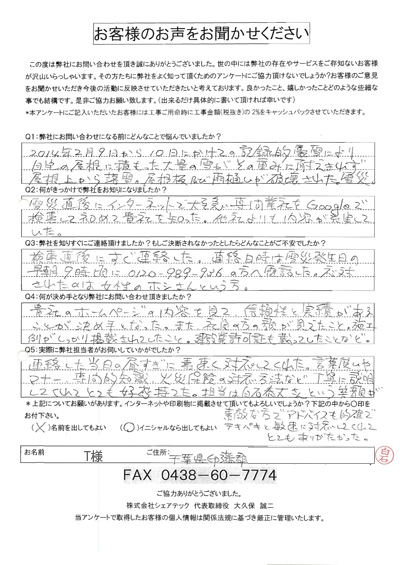 お客様のお声をお聞かせください
この度は弊社にお問い合わせを頂き誠にありがとうございました。世の中には弊社の存在やサービスをご存知ないお客様
が沢山いらっしゃいます。その方たちに弊社をよく知って頂くためのアンケートにご協力頂けないでしょうか?お客様のご意見
をお聞かせいただき今後の活動に反映させていきたいと考えております。良かったこと、嬉しかったことどのような些細な
事でも結構です。是非ご協力お願い致します。(出来るだけ具体的に書いて頂ければ幸いです)
*本アンケートにご記入いただいたお客様には工事ご用命時に工事金額(税抜き)の2%をキャッシュバックさせていただきます。
Q1:弊社にお問い合わせになる前にどんなことで悩んでいましたか?
2014年2月9日から10日にかけての記録的豪雪により
自宅の屋根に積もった大量の雪がその重みに耐えきれず
屋根上から落雪。屋根板及び雨樋しが破壊された。雪災。
Q2:何がきっかけで弊社をお知りになりましたか?
雪災直後にインターネットで大手の専門業者をGoogleで
検索して初めて貴社を知った。他社よりも内容が充実して
いた。
Q3:弊社を知りすぐにご連絡頂けましたか?もしご決断されなかったとしたらどんなことがご不安でしたか?
検索直後にすぐ連絡した。連絡日時は雪災発生日の
早朝9時頃に0120-989-936の方へ電話した。応対
されたのは女性のホシさんという方。
Q4:何が決め手となり弊社にお問い合わせ頂きましたか?
貴社のホームページの内容を見て、信頼性と実績がある
ことが決め手となった。また、社員の方の顔が見えたこと。施工
例がしっかり掲載されたこと。建設業許可証も載ってたことなど。
Q5:実際に弊社担当者がお伺いしていかがでしたか?
連絡した当日の昼すぎに素早く対応してくれた。言葉使いや
マナー、専門的知識、火災保険の対応方法など丁寧に説明
してくれてとても好感持てた。担当は白石亮太さんという笑顔が
*上記についてお願いがあります。インターネットや印刷物に掲載させて頂いてもよろしいでしょうか?下記の中から〇印を
お付下さい。
素敵な方でアドバイスも的確で
(×)名前を出してもよい (〇)イニシャルなら出してもよい
テキパキと敏速に対応してくれて
とてもありがたかった。
お名前 T様 ご住所: 千葉県印旛郡
白石
FAX 0438-60-7774
ご協力ありがとうございました。
株式会社シェアテック 代表取締役 大久保 誠二
当アンケートで取得したお客様の個人情報は関係法規に基づき厳正に管理いたします。